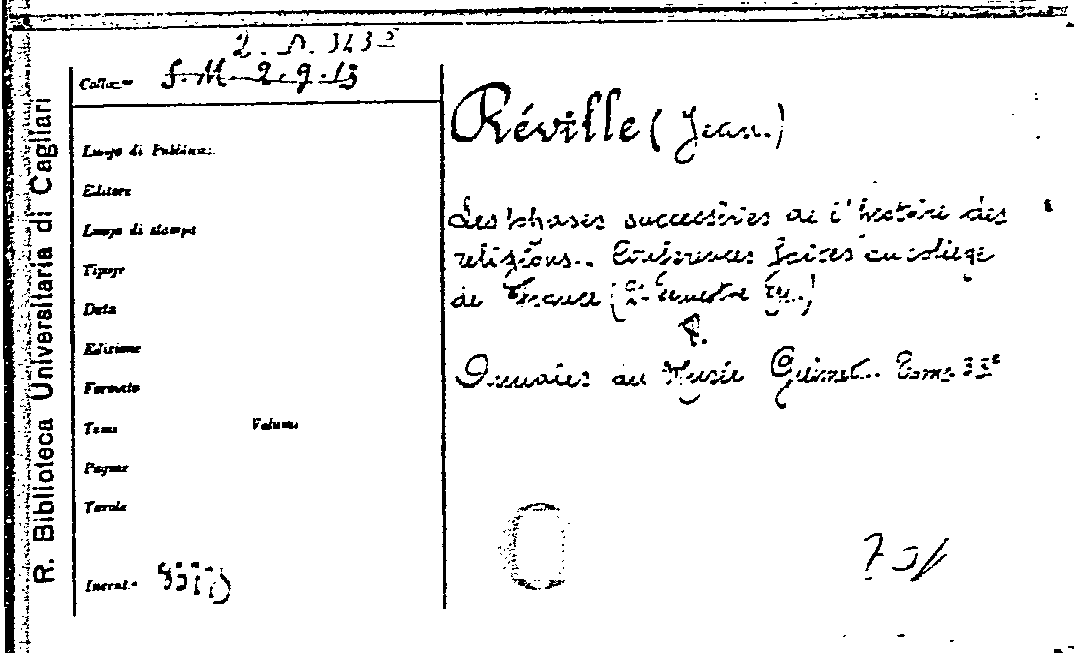 R. Biblioteca Universitaria di Cagliari
Collaz.ne S.M. 2.9.13
Luogo di Pubblicaz.
Editore
Luogo di stampa
Tipogr
Data
Edizione
Formato
Tomi Volume
Pagine
Tavole
Inerat.e
Réville (Jean.)
Les phases successives de l'histoire des
religions.. Conférences faites au collège
de France
Annales du Musée Guimet.. Tome 33e